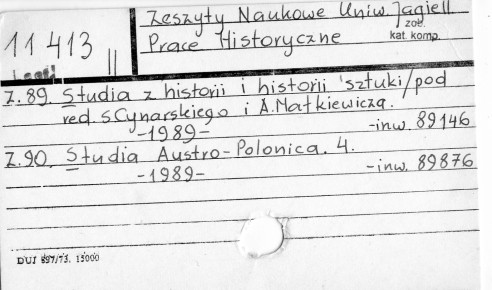 Zeszyty Naukowe Uniw. Jagiell.
zob.
kat. komp.
11 413 II
Prace Historyczne
Z. 89. Studia z historii i historii sztuki/pod
red. S.Cynarskiego i A.Małkiewicza.
-1989- -inw. 89146
Z.90. Studia Austro-Polonica. 4.
-1989- -inw. 89876
DUJ 897/73. 15000